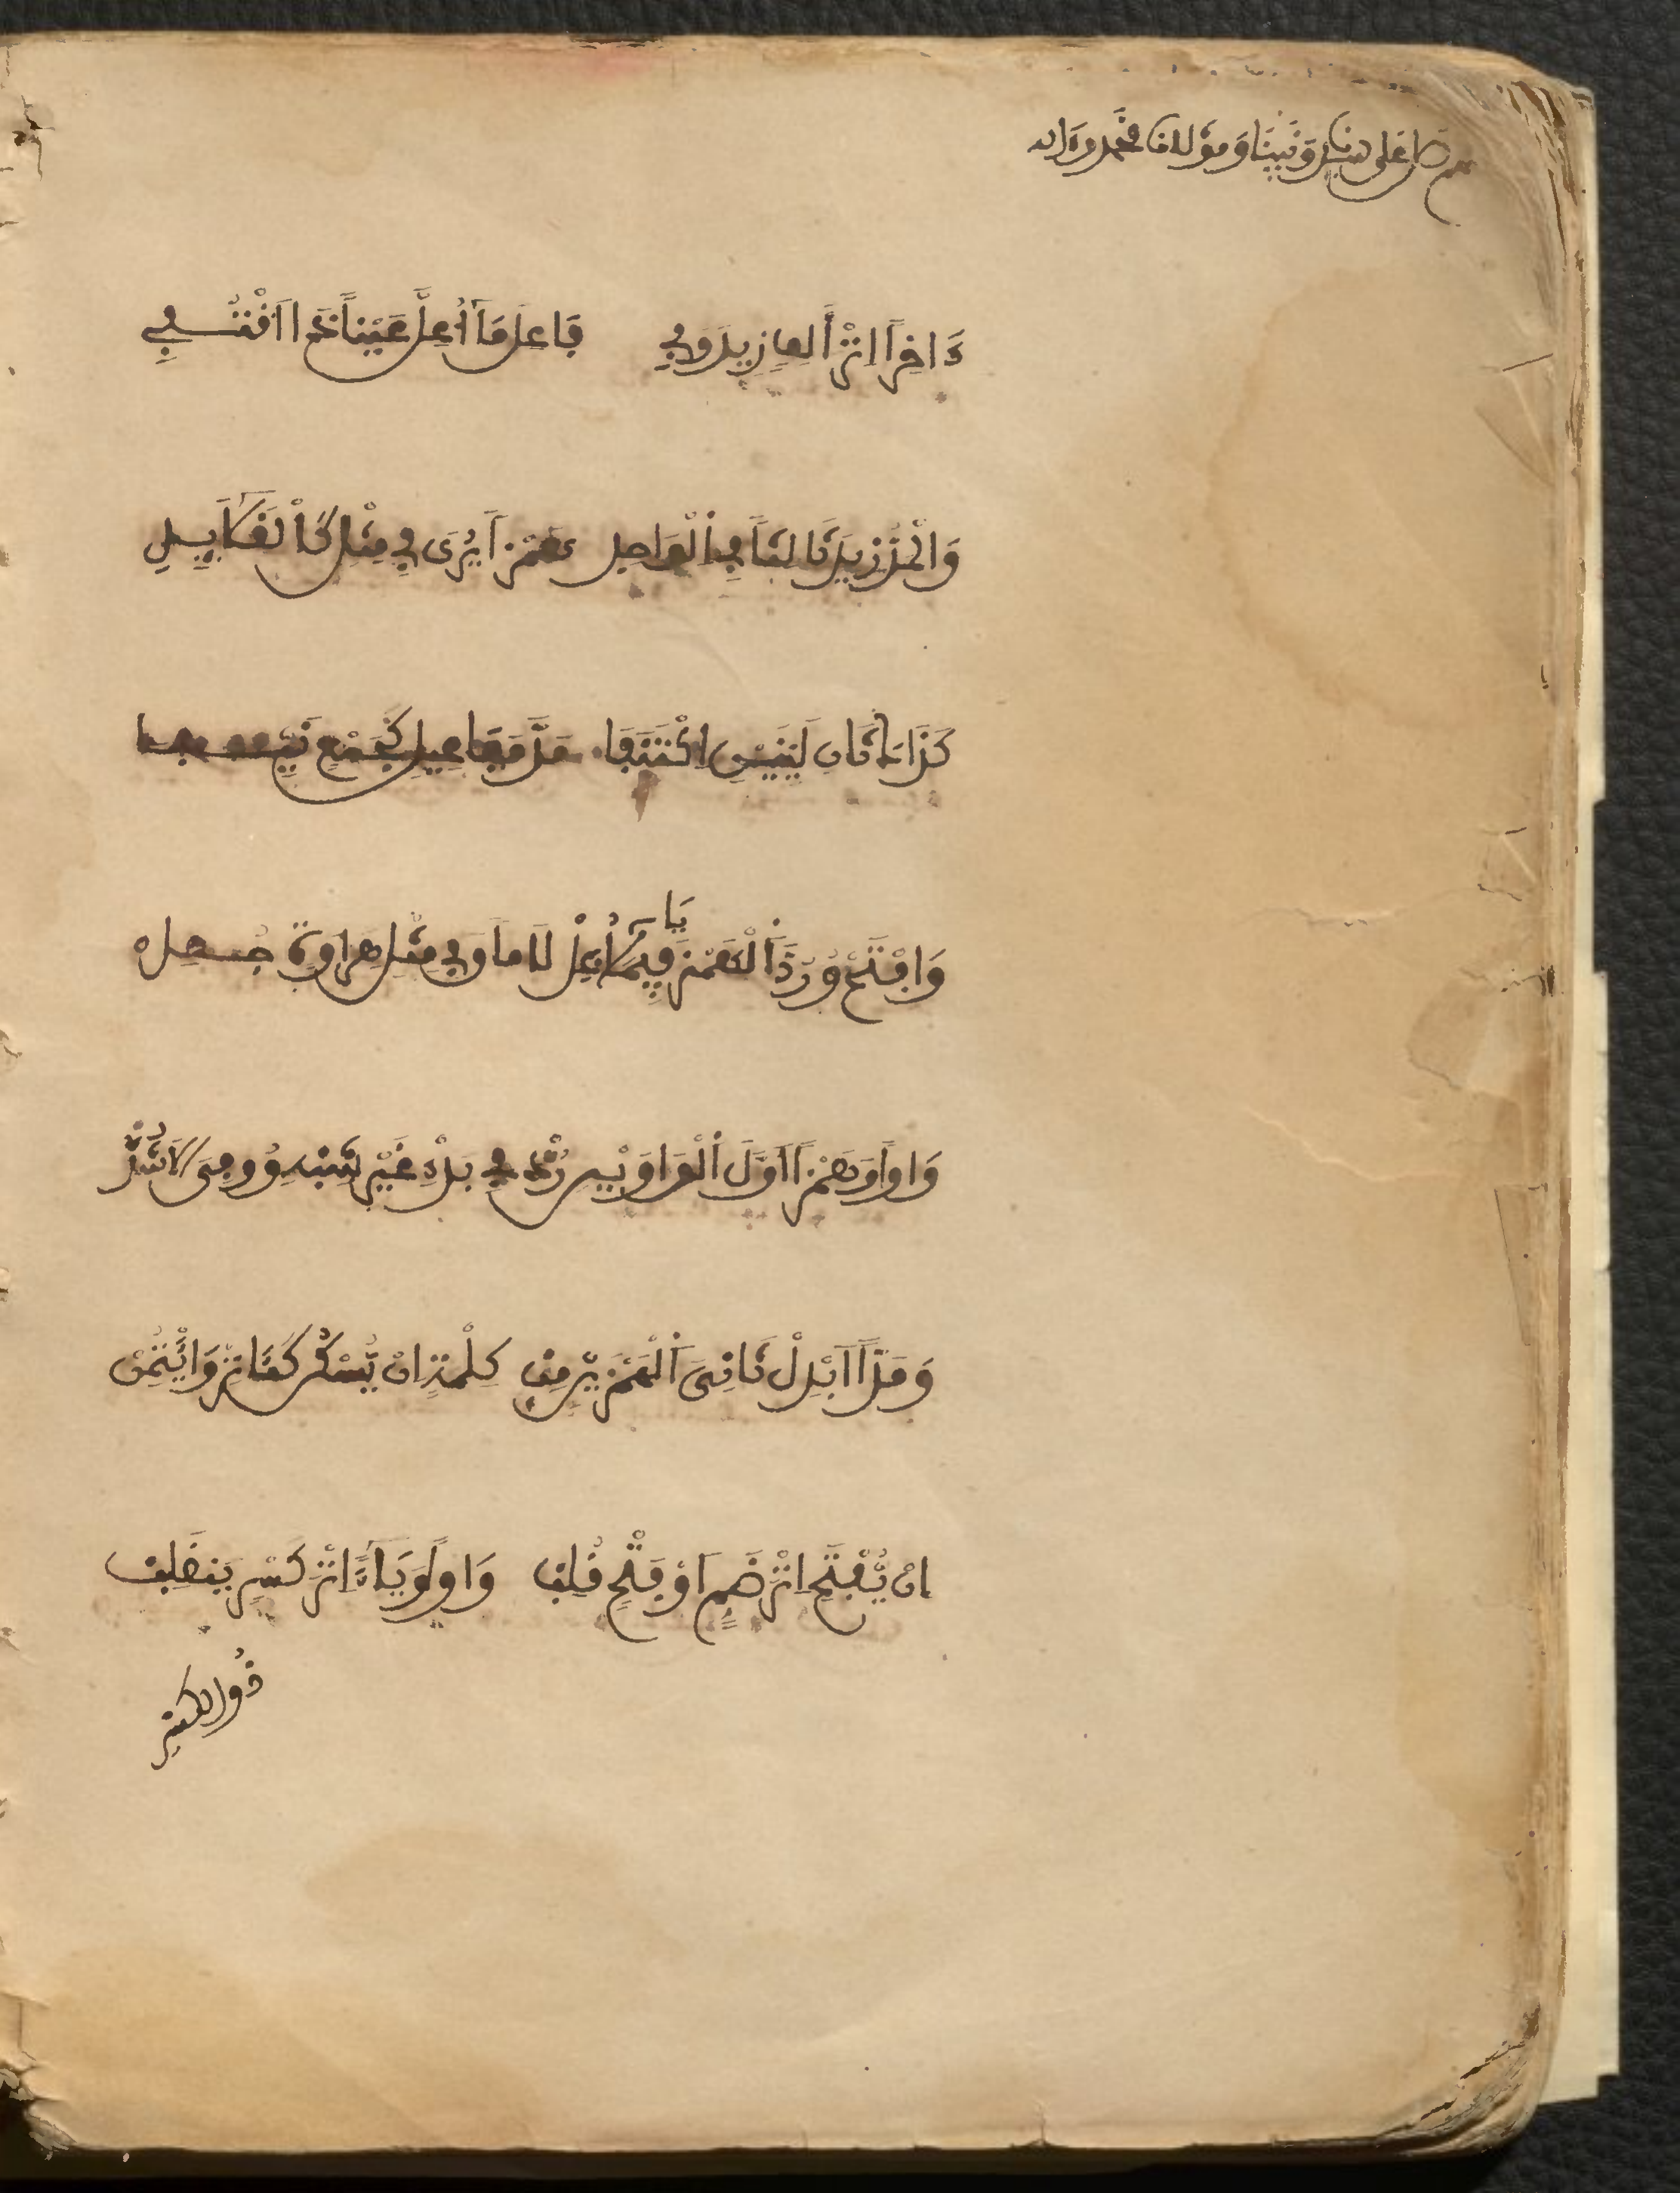 صل على سيدنا ونبينا ومولانا محمد وءاله
ءَاخِرًا اثْرَ أَلِفٍ زِيدَ وَفِي فَاعِلِ مَا أُعِلَّ عَيْنًا ذَا اقْتُفِي
وَالْمَدُّ زِيدَ ثَالِثًا فِي الْوَاحِدِ هَمْزًا يُرَى فِي مِثْلِ كَالْقَلَائِدِ
كَذَاكَ ثَانِ لَيِّنَيْنِ اكْتَنَفَا مَدَّ مَفَاعِيلَ كَجَمْعٍ نَيِّفَا
وَافْتَحْ وَرُدَّ الْهَمْزَ يَا فِيمَا أُعِلْ لَامًا وَفِي مِثْلِ هِرَاوَةٍ جُعِلْ
وَاوًا وَهَمْزًا أَوَّلَ الْوَاوَيْنِ رُدْ فِي بَدْءِ غَيْرِ شِبْهِ وُوفِيَ الْأَشُدْ
وَمَدًّا ابْدِلْ ثَانِيَ الْهَمْزَيْنِ مِنْ كِلْمَةٍ انْ يَسْكُنْ كَآثِرْ وَائْتُمِنْ
إِنْ يُفْتَحِ اثْرَ ضَمٍّ اَوْ فَتْحٍ قُلِبْ وَاوًا وَيَاءً اثْرَ كَسْرٍ يَنْقَلِبْ
ذُو الكسر